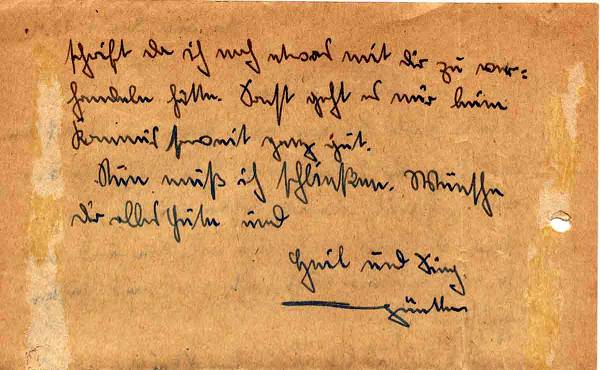 schrift da ich noch etwas mit dir zu ver=
handeln hätte. Sonst geht es mir beim
Kommis soweit ganz gut.
Nun muß ich schließen. Wünsche
dir alles Gute und
Heil und Sieg.
Günther